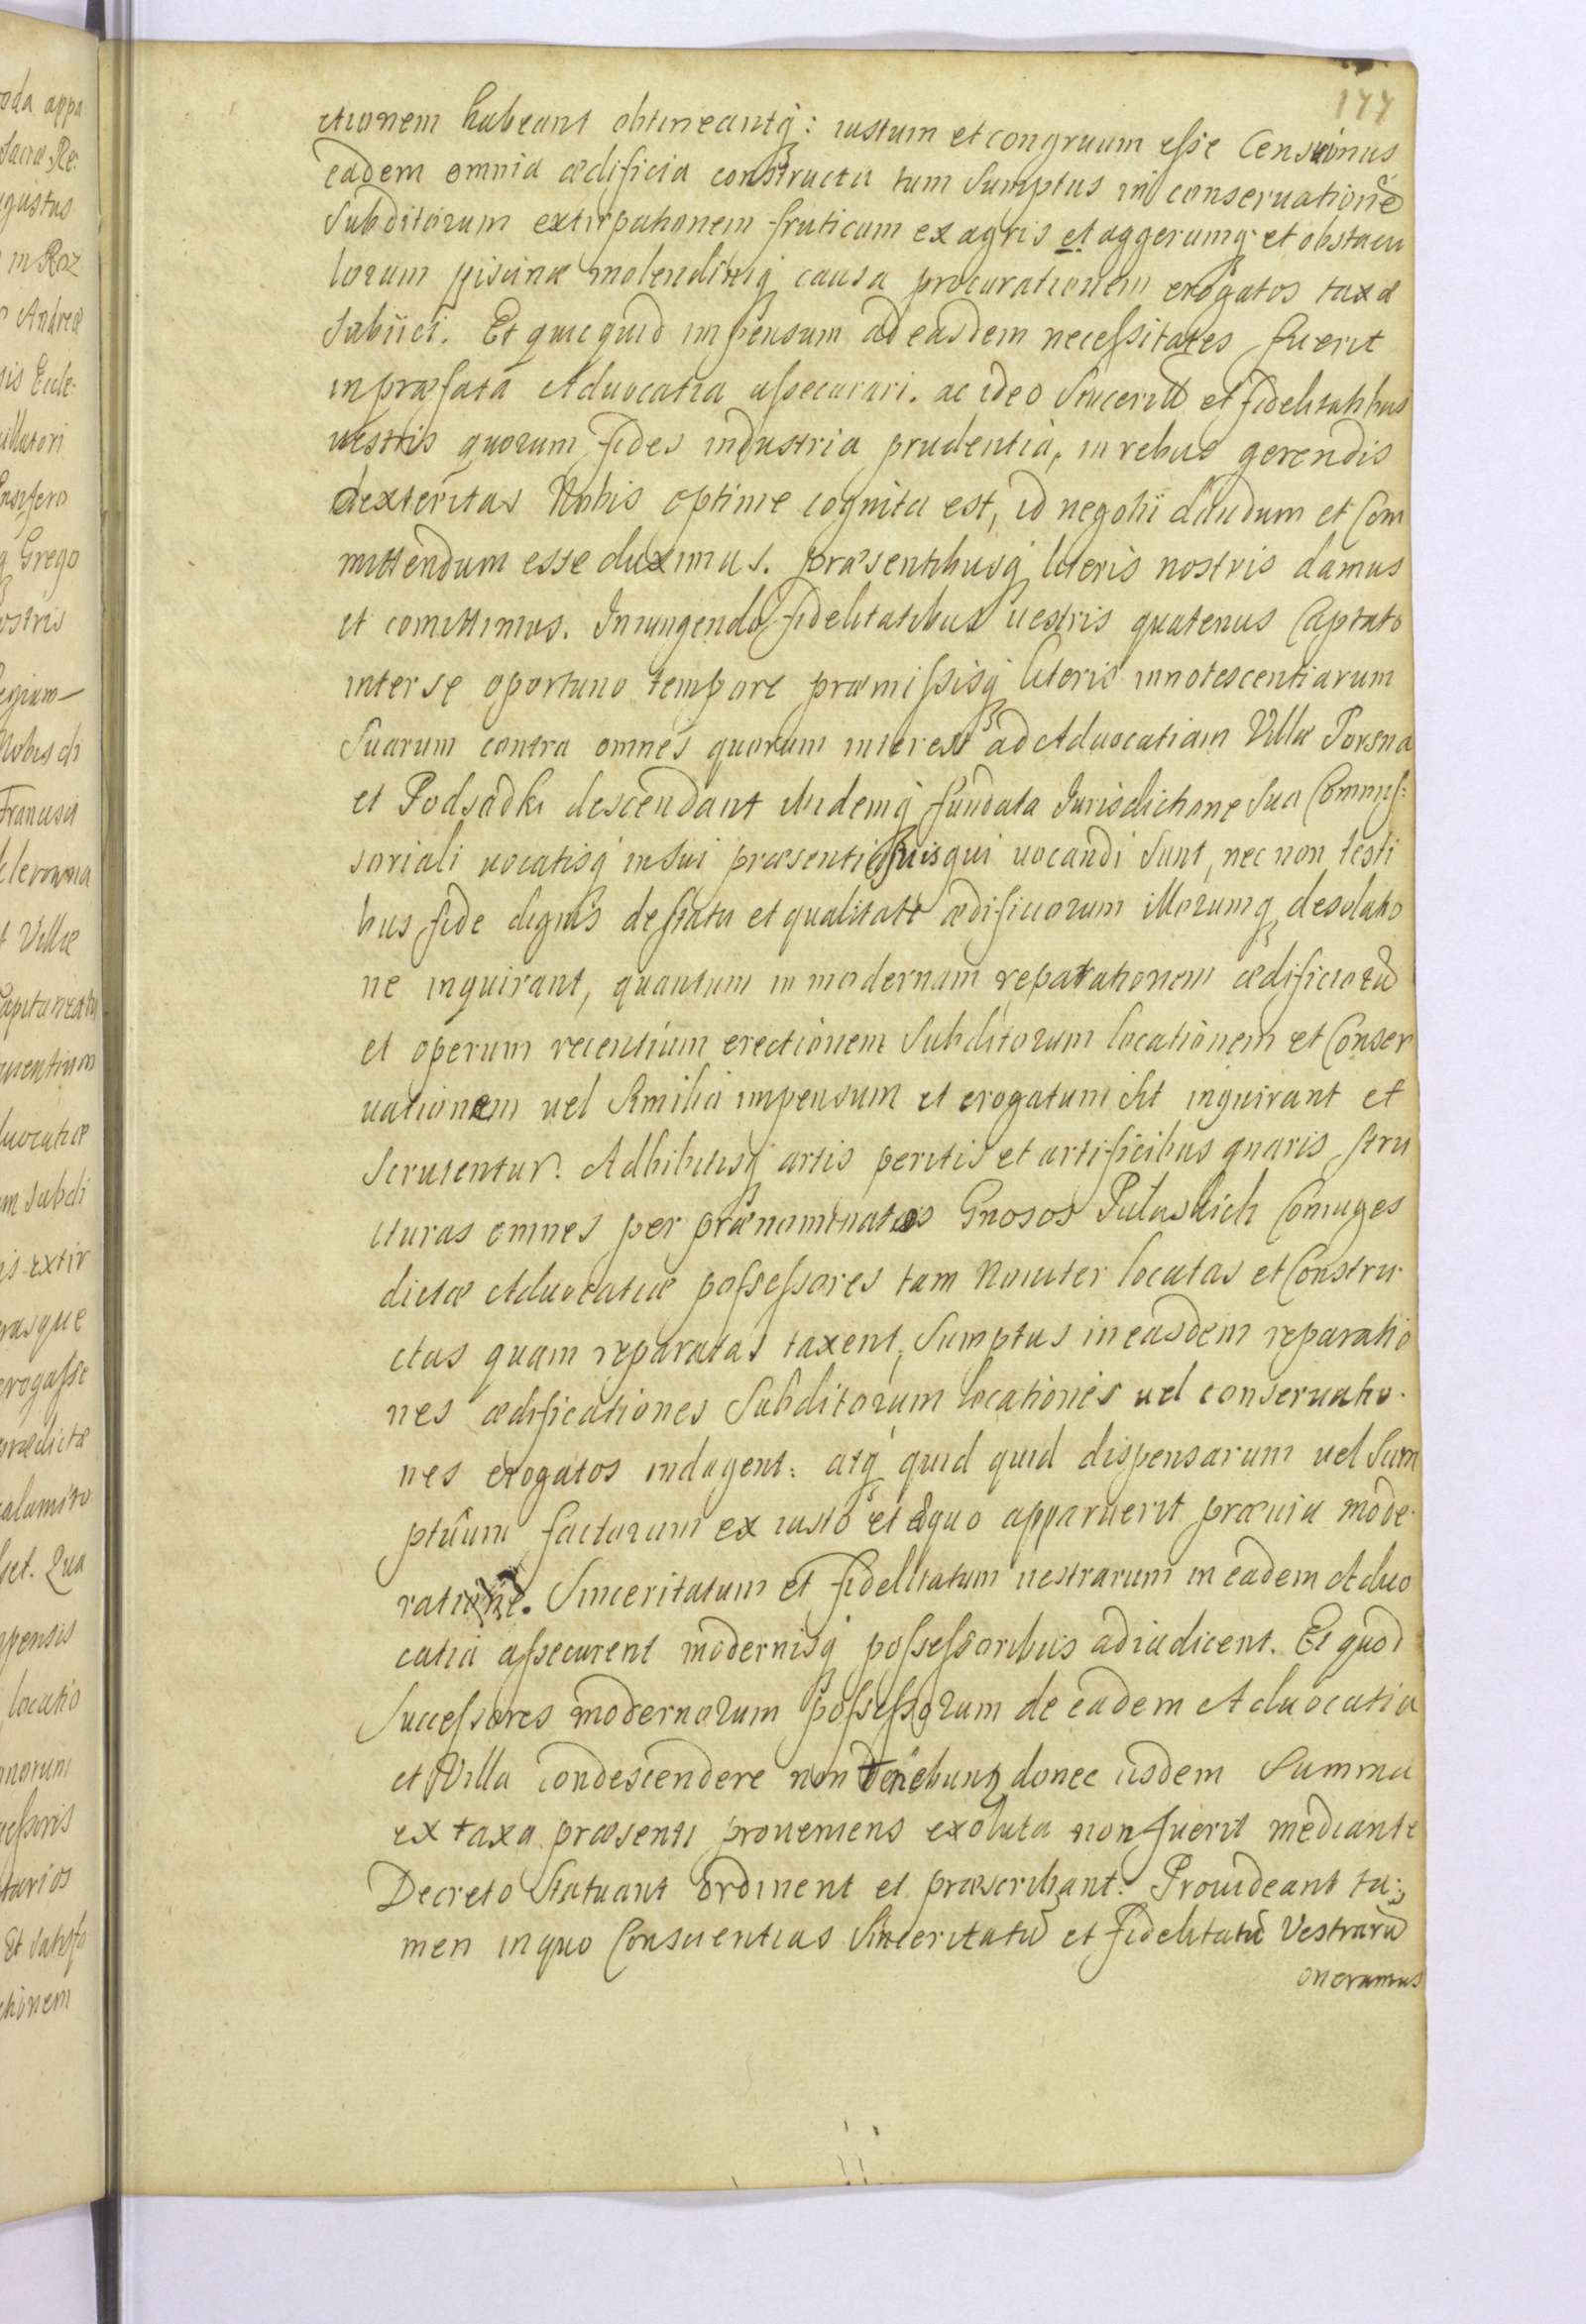 177
ctionem habeant obtineantq: iustum et congruum esse Censuimus
eadem omnia ædificia constructa tum Sumptus in conseruatione
Subditorum extirpationem fruticum ex agris et aggerumq et obstacu
lorum piscinæ molendiniq causa procurationem erogatos taxæ
Subiici. Et quicquid impensum ad easdem necessitates fuerit
in præfata Aduocatia assecurari. ac ideo Sincerit et fidelitatibus
uestris quorum fides industria prudentia, in rebus gerendis
dexteritas Nobis optime cognita est, id negotii dandum et Com
mittendum esse duximus. præsentibusq literis nostris damus
et comittimus. Iniungendo fidelitatibus uestris quatenus Captato
inter se oportuno tempore præmissisq literis innotescentiarum
Suarum contra omnes quorum interest ad Aduocatiam Villæ Porsna
et Podsadki descendant ibidemq fundata Iurisdictione Sua Commis:
soriali uocatisq in Sui præsentia ijs qui uocandi Sunt, nec non testi
bus fide dignis de statu et qualitate ædificiorum illorumq desolatio
ne inquirant, quantum in modernam reparationem ædificiorū
et operum recentium erectionem Subditorum locationem et Conser
uationem uel Similia impensum et erogatum sit inquirant et
Scrutentur. Adhibitisq artis peritis et artificibus gnaris stru
cturas omnes per prænominatos Gnosos Pulaskich Coniuges
dictæ Aduocatiæ possessores tam Nouiter locatas et Constru
ctas quam reparatas taxent, Sumptus in easdem reparatio
nes ædificationes Subditorum locationes uel conseruatio
nes erogatos indagent: atq quid quid dispensarum uel Sum
ptuum factorum ex iusto et æquo apparuerit præuia mode
ratione. Sinceritatum et fidelitatum uestrarum in eadem Aduo
catia assecurent modernisq possessoribus adiudicent. Et quod
Successores modernorum possessorum de eadem Aduocatia
et Villa condescendere non tenebunt donec iisdem Summa
ex taxa præsenti proueniens exoluta non fuerit mediante
Decreto Statuant ordinent et præscribant. Prouideant ta:
men in quo Conscientias Sinceritatū et Fidelitatū Vestrarū
oneramus